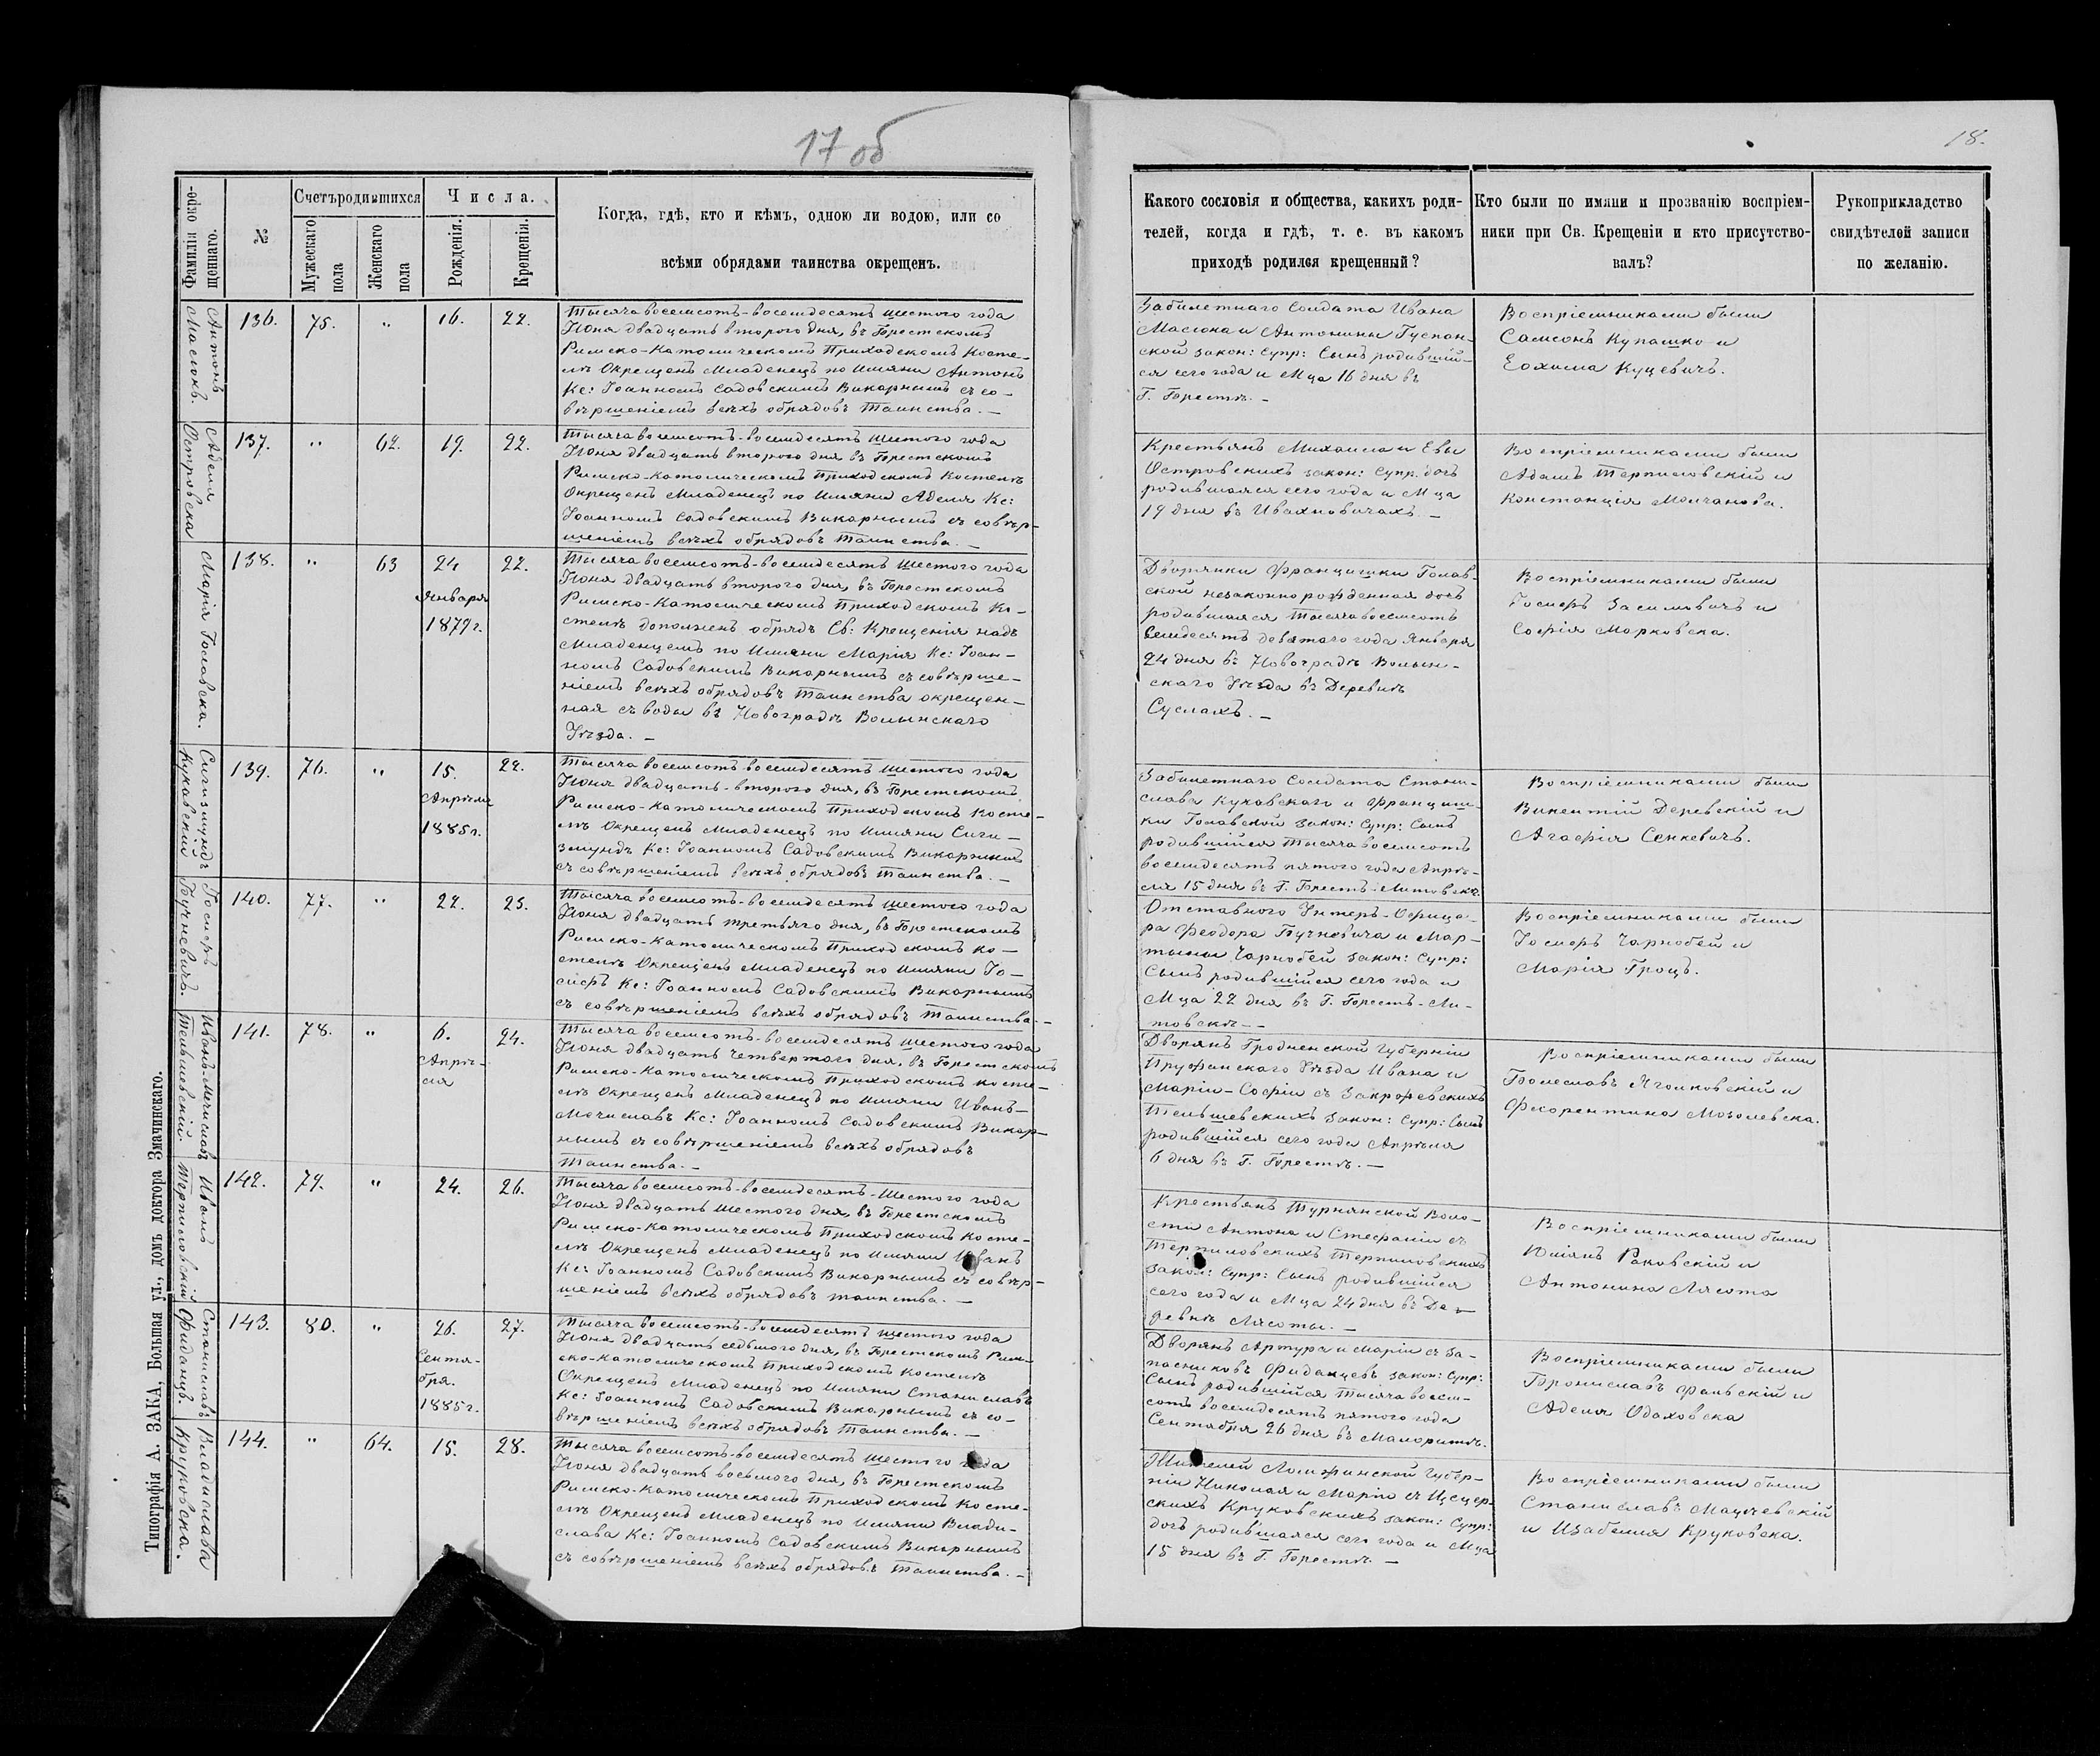 17 об
18.
Фамилія окре-
щеннаго.
№
Счетъ родившихся
Мужескаго
пола
Женскаго
пола
Числа.
Рожденія.
Крещенія.
Когда, гдѣ, кто и кѣмъ, одною ли водою, или со
всѣми обрядами таинства окрещенъ.
Какого сословія и общества, какихъ роди-
телей, когда и гдѣ, т. е. въ какомъ
приходѣ родился крещенный?
Кто были по имяни и прозванію воспріем-
ники при Св. Крещеніи и кто присутство-
валъ?
Рукоприкладство
свидѣтелей записи
по желанію.
Антонъ
Масюкъ.
136.
75.
"
16.
22.
Тысяча восемсотъ-восемдесятъ шестого года
Іюня двадцать второго дня, въ Брестскомъ
Римско-Католическомъ Приходскомъ Косте-
лѣ Окрещенъ Младенецъ по Имяни Антонъ
Кс: Іоанномъ Садовскимъ Викарнымъ съ со-
вѣршеніемъ всѣхъ обрядовъ Таинства. —
Забилетнаго Солдата Ивана
Масюка и Антонины
закон: супр: Сынъ родившій-
ся сего года и Мца 16 дня въ
Г. Брестѣ. —
Воспріемниками были
Самсонъ Купашко и
Еохима Куцевичъ.
Аделя
Островска
137.
"
62.
19.
22.
Тысяча восемсотъ-восемдесятъ шестого года
Іюня двадцать второго дня въ Брестскомъ
Римско-Католическомъ Приходскомъ Костелѣ
Окрещенъ Младенецъ по Имяни Аделя Кс:
Іоанномъ Садовскимъ Викарнымъ съ совѣр-
шеніемъ всѣхъ обрядовъ Таинства. —
Крестьянъ Михаила и Евы
Островскихъ закон: супр: дочь
родившаяся сего года и Мца
19 дня въ Ивахновичахъ. —
Воспріемниками были
Адамъ Терпиловскій и
Констанція Молчанова.
Марія Голавска.
138.
"
63
24
Января
1879 г.
22.
Тысяча восемсотъ-восемдесятъ шестого года
Іюня двадцать второго дня, въ Брестскомъ
Римско-Католическомъ Приходскомъ Ко-
стелѣ дополненъ обрядъ Св: Крещенія надъ
Младенцемъ по Имяни Марія Кс: Іоан-
номъ Садовскимъ Викарнымъ съ совѣрше-
ніемъ всѣхъ обрядовъ Таинства окрещен-
ная съ воды въ Новоградѣ Волынскаго
Уѣзда. —
Дворянки Францишки Голав-
ской незаконнорожденная дочь
родившаяся Тысяча восемсотъ
семдесятъ девятаго года Января
24 дня въ Новоградѣ Волын-
скаго Уѣзда въ Деревнѣ
Суслахъ. —
Воспріемниками были
Іосифъ Василевичъ и
Софія Марковска.
Сигизмундъ
Кухавскій
139.
76.
"
15.
Апрѣля
1885 г.
22.
Тысяча восемсотъ восемдесятъ шестого года
Іюня двадцать-второго дня, въ Брестскомъ
Римско-Католическомъ Приходскомъ Косте-
лѣ Окрещенъ Младенецъ по Имяни Сиги-
змундъ Кс: Іоанномъ Садовскимъ Викарнымъ
съ совѣршеніемъ всѣхъ обрядовъ Таинства. —
Забилетнаго Солдата Стани-
слава Куховскаго и Францишки
Голавской закон: Супр: Сынъ
родившійся Тысяча восемсотъ
восемдесятъ пятого года Апрѣ-
ля 15 дня въ Г. Брестъ-Литовскѣ.
Воспріемниками были
Викентій Деревскій и
Агафія Сенкевичъ.
Іосифъ
Бучневичъ.
140.
77.
"
22.
23.
Тысяча восемсотъ-восемдесятъ шестого года
Іюня двадцать третьяго дня, въ Брестскомъ
Римско-Католическомъ Приходскомъ Ко-
стелѣ Окрещенъ Младенецъ по Имяни Іо-
сифъ Кс: Іоанномъ Садовскимъ Викарнымъ
съ совѣршеніемъ всѣхъ обрядовъ Таинства. —
Отставного Унтеръ-Офице-
ра Феодора Бучневича и Мар-
тыны Чарнобей закон: Супр:
Сынъ родившійся сего года и
Мца 22 дня въ Г. Брестъ-Ли-
товскѣ. —
Воспріемниками были
Іосифъ Чарнобей и
Марія Гроцъ.
Иванъ-Мечиславъ
Тельшевскій.
141.
78.
"
6.
Апрѣ-
ля
24.
Тысяча восемсотъ-восемдесятъ шестого года
Іюня двадцать четвертого дня, въ Брестскомъ
Римско-Католическомъ Приходскомъ Косте-
лѣ Окрещенъ Младенецъ по Имяни Иванъ-
Мечиславъ Кс: Іоанномъ Садовскимъ Викар-
нымъ съ совѣршеніемъ всѣхъ обрядовъ
Таинства. —
Дворянъ Гродненской Губерніи
Пружанскаго Уѣзда Ивана и
Маріи-Софіи съ Закржевскихъ
Тельшевскихъ закон: Супр: Сынъ
родившійся сего года Апрѣля
6 дня въ Г. Брестѣ. —
Воспріемниками были
Болеславъ Яголковскій и
Флорентина Мозолевска.
Иванъ
Терпиловскій
142.
79.
"
24.
26.
Тысяча восемсотъ-восемдесятъ-шестого года
Іюня двадцать шестого дня, въ Брестскомъ
Римско-Католическомъ Приходскомъ Косте-
лѣ Окрещенъ Младенецъ по Имяни Иванъ
Кс: Іоанномъ Садовскимъ Викарнымъ съ совѣр-
шеніемъ всѣхъ обрядовъ таинства. —
Крестьянъ Турнянской Воло-
сти Антона и Стефаніи съ
Терпиловскихъ Терпиловскихъ
закон: Супр: Сынъ родившійся
сего года и Мца 24 дня въ Де-
ревнѣ Лясоты. —
Воспріемниками были
Юліянъ Раковскій и
Антонина Лясота
Станиславъ
Фиданцъ.
143.
80.
"
26.
Сентя-
бря.
1885 г.
27.
Тысяча восемсотъ-восемдесятъ шестого года
Іюня двадцать седьмого дня, въ Брестскомъ Рим-
ско-Католическомъ Приходскомъ Костелѣ
Окрещенъ Младенецъ по Имяни Станиславъ
Кс: Іоанномъ Садовскимъ Викарнымъ съ со-
вѣршеніемъ всѣхъ обрядовъ Таинства. —
Дворянъ Артура и Маріи съ За-
пасниковъ Фиданцевъ закон: Супр:
Сынъ родившійся Тысяча восем-
сотъ восемдесятъ пятого года
Сентября 26 дня въ Малоритѣ.
Воспріемниками были
Брониславъ Фальскій и
Аделя Одаховска
Владислава
Круковска.
144.
"
64.
15.
28.
Тысяча восемсотъ-восемдесятъ шестого года
Іюня двадцать восьмого дня, въ Брестскомъ
Римско-Католическомъ Приходскомъ Косте-
лѣ Окрещенъ Младенецъ по Имяни Влади-
слава Кс: Іоанномъ Садовскимъ Викарнымъ
съ совѣршеніемъ всѣхъ обрядовъ Таинства. —
Жителей Ломжинской Губер-
ніи Николая и Маріи съ
Круковскихъ закон: Супр:
дочь родившаяся сего года и Мца
15 дня въ Г. Брестѣ. —
Воспріемниками были
Станиславъ Мацчевскій
и Изабелля Круковска.
Типографія А. ЗАКА, Большая ул., домъ доктора Змачинскаго.